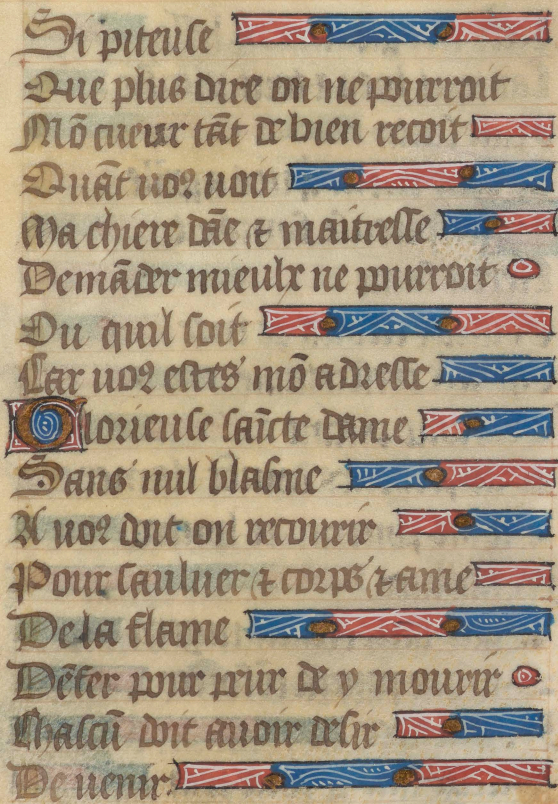 Si piteuse
Que plus dire on ne pourroit
Mō cueur tāt de bien recoit
Quāt vo9 voit
Ma chiere dāe & maitresse
Demāder mieulx ne pourroit
Ou quil soit
Car vo9 estes mō adresse
Glorieuse saīcte dame
Sans nul blasme
A vo9 doit on recourir
Pour sauluer & corps & ame
De la flame
Dēfer pour peur de y mourir
Chascū doit auoir desir
De uenir